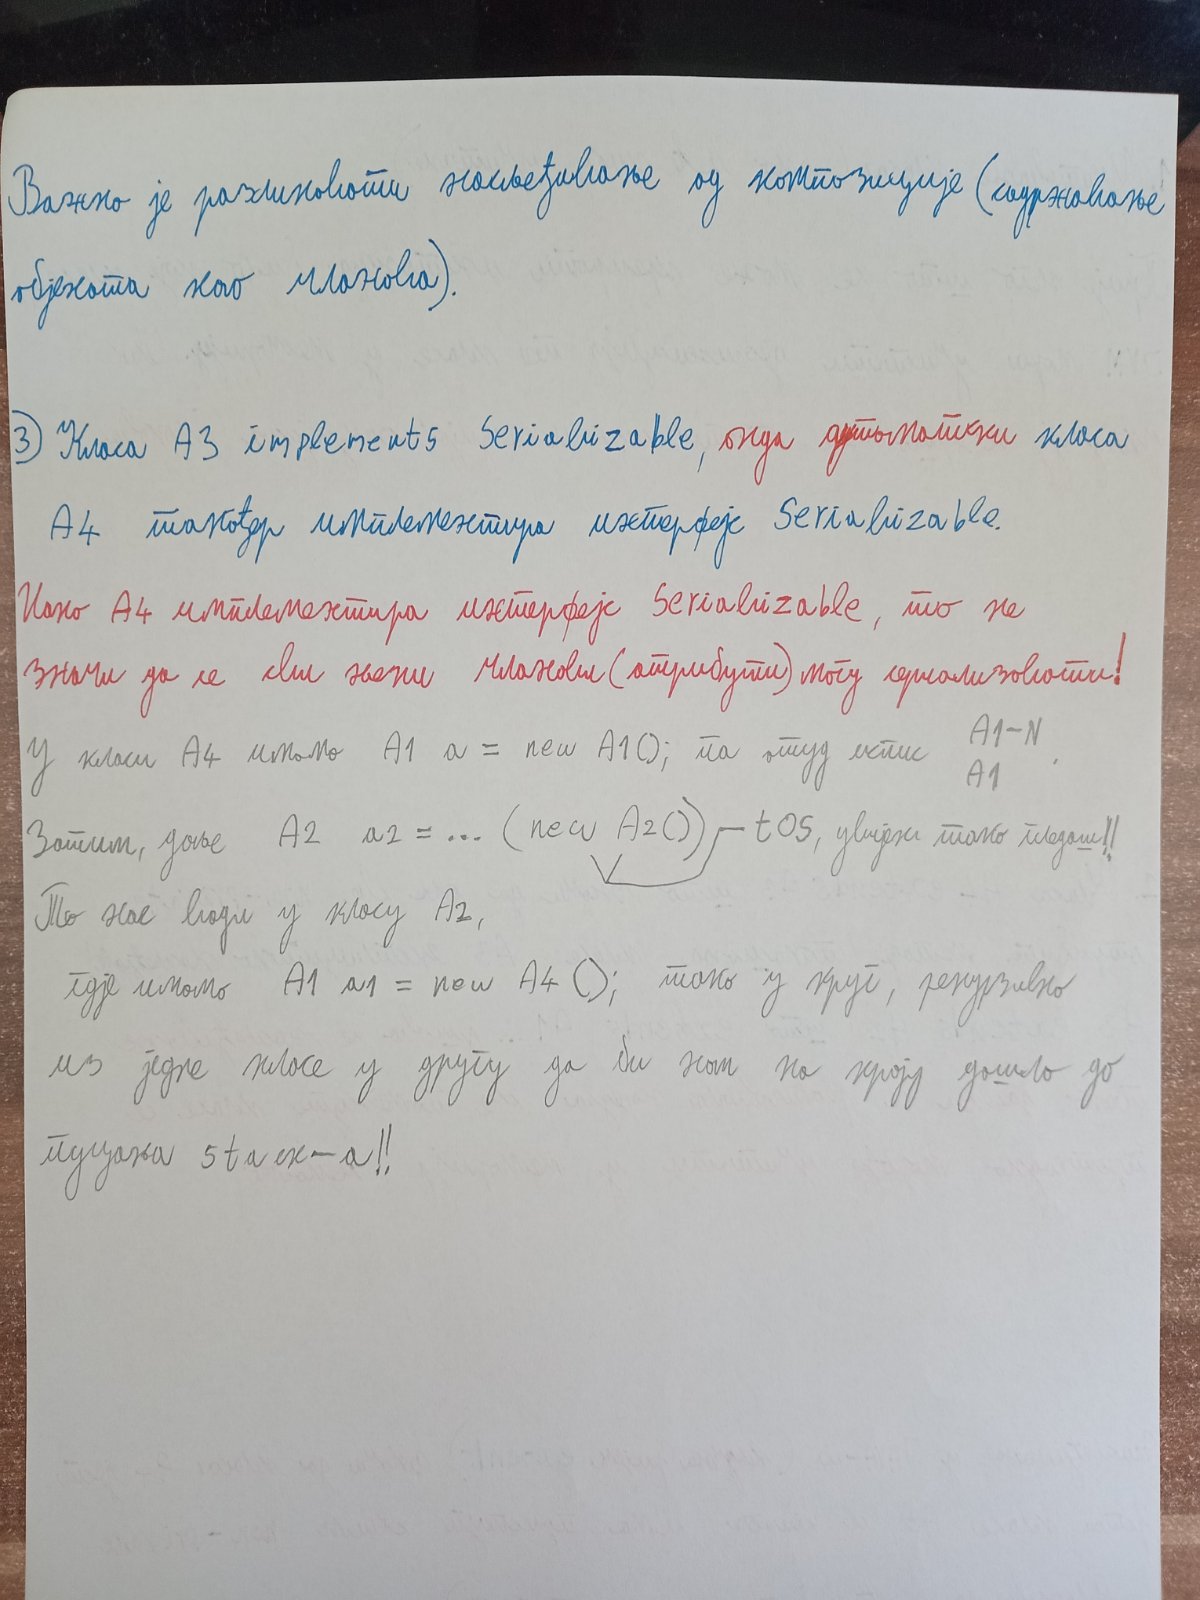 Важно је разликовати насљеђивање од композиције (садржавање
објеката као чланова).
3) Класа A3 implements Serializable, онда аутоматски класа
A4 такођер имплементира интерфејс Serializable.
Иако A4 имплементира интерфејс Serializable, то не
значи да се сви њени чланови (атрибути) могу серијализовати!
У класи A4 имамо A1 a = new A1(); па отуд испис A1-N
A1.
Затим, доље A2 a2 = ... (new A2()) - tOS, увијек тако гледаш!!
То нас води у класу A2,
гдје имамо A1 a1 = new A4(); тако у круг, рекурзивно
из једне класе у другу да би нам на крају дошло до
пуцања stack-a!!